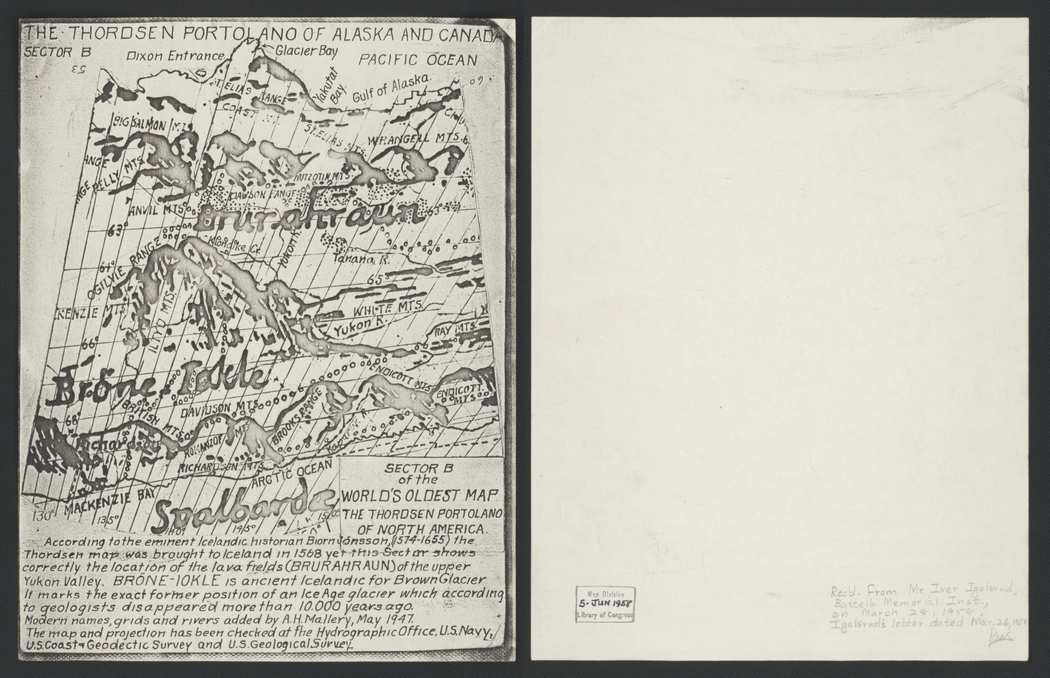 THE THORDSEN PORTOLANO OF ALASKA AND CANADA
SECTOR B
Dixon Entrance
Glacier Bay
PACIFIC OCEAN
Yakutat Bay
Gulf of Alaska
ST. ELIAS RANGE
COAST
BIG SALMON MT.
ST. ELIAS MTS.
WRANGELL MTS.
ANGE
PELLY MTS.
NUTZOTIN MTS.
DAWSON RANGE
ANVIL MTS.
Brurahraun
63°
63°
Klondike Cr.
Yukon R.
Tanana R.
64°
OGILVIE RANGE
65°
KENZIE MTS
ILLYD MTS.
WHITE MTS.
Yukon R.
RAY MTS.
66°
Bröne Iokle
ENDICOTT MTS
ENDICOTT MTS.
BRITISH MTS
DAVIDSON MTS.
BROOKS RANGE
68°
Richardson
ROMANZOF MTS
RICHARDSON MTS.
ARCTIC OCEAN
MACKENZIE BAY
130°
135°
140°
145°
150°
Svalbarde
SECTOR B
of the
WORLD'S OLDEST MAP
THE THORDSEN PORTOLANO
OF NORTH AMERICA.
According to the eminent Icelandic historian Biorn Jonsson, (1574-1655) the
Thordsen map was brought to Iceland in 1568 yet this Sector shows
correctly the location of the lava fields (BRURAHRAUN) of the upper
Yukon Valley. BRÖNE-IOKLE is ancient Icelandic for Brown Glacier
It marks the exact former position of an Ice Age glacier which according
to geologists disappeared more than 10.000 years ago.
Modern names, grids and rivers added by A.H. Mallery, May 1947.
The map and projection has been checked at the Hydrographic Office, U.S. Navy,
U.S. Coast & Geodectic Survey and U.S. Geological Survey.
Map Division
5-JUN 1958
Library of Congress
Recd. From Mr Iver
Memorial Inst.,
on March 28, 1958.
letter dated Mar. 26, 1958